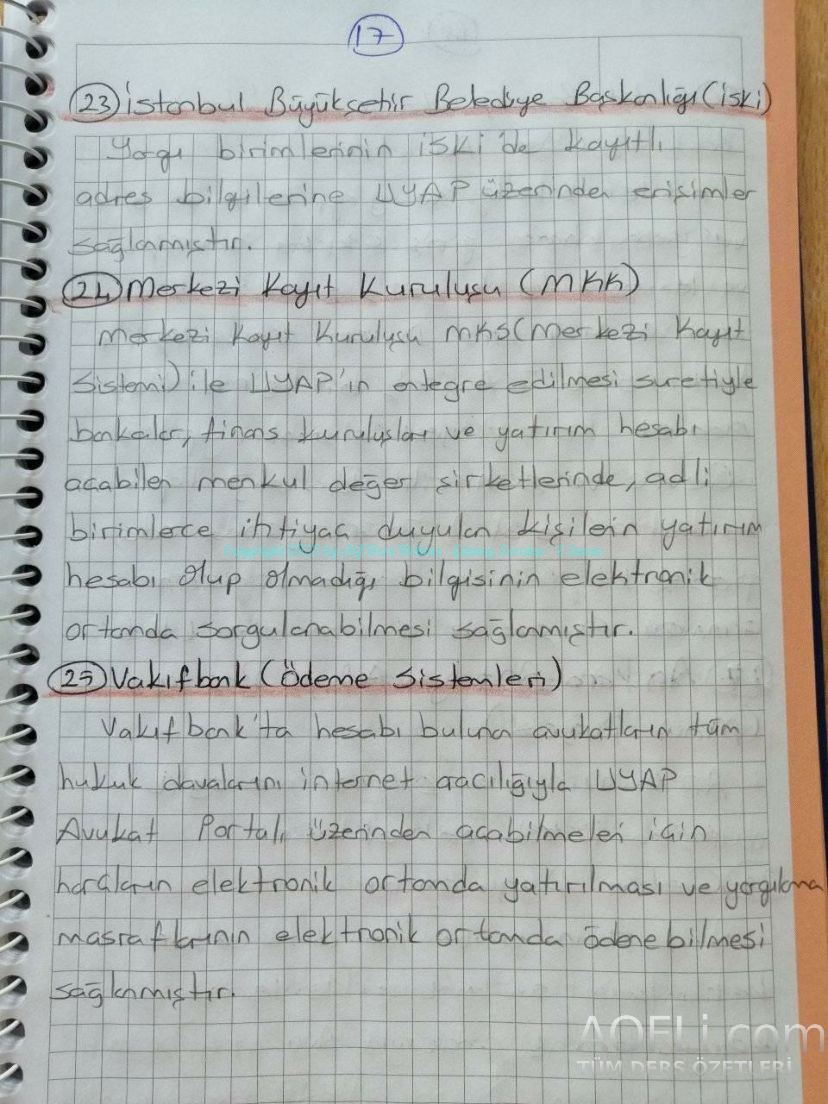 17
23 İstanbul Büyükşehir Belediye Başkanlığı (İski)
Yargı birimlerinin İSKİ'de kayıtlı
adres bilgilerine UYAP üzerinden erişimler
sağlanmıştır.
24 Merkezi Kayıt Kuruluşu (MKK)
Merkezi Kayıt Kuruluşu MKS (Merkezi Kayıt
Sistemi) ile UYAP'ın entegre edilmesi suretiyle
bankalar, finans kuruluşları ve yatırım hesabı
açabilen menkul değer şirketlerinde, adli
birimlerce ihtiyaç duyulan kişilerin yatırım
hesabı olup olmadığı bilgisinin elektronik
ortamda sorgulanabilmesi sağlanmıştır.
25 Vakıfbank (Ödeme Sistemleri)
Vakıfbank'ta hesabı bulunan avukatların tüm
hukuk davalarını internet aracılığıyla UYAP
Avukat Portalı üzerinden açabilmeleri için
harçların elektronik ortamda yatırılması ve yargılama
masraflarının elektronik ortamda ödenebilmesi
sağlanmıştır.
AOFLi.com
TÜM DERS ÖZETLERİ